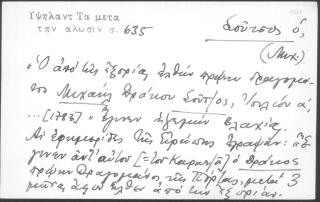 Υψηλαντ Τα μετα
την αλωσιν σ. 635
Σοῦτσος ὁ,
(Μιχ.)
«Ὁ ἀπὸ τῆς ἐξορίας ἐλθὼν πρώην δραγομά-
νος Μιχαὴλ Δράκου Σοῦτζος, Ἰουλίου α',
...[1783] ἔγινεν ἡγεμὼν Βλαχίας.
Αἱ ἐφημερίδες τῆς
γινεν ἀντ' αὐτοῦ [= τοῦ Καρατζᾶ] ὁ Δράκος
πρώην Δραγομάνος τῆς Πόρτας, μετὰ 3
μῆνας ἀφ' οὗ ἦλθεν ἀπὸ τὴν ἐξορίαν.